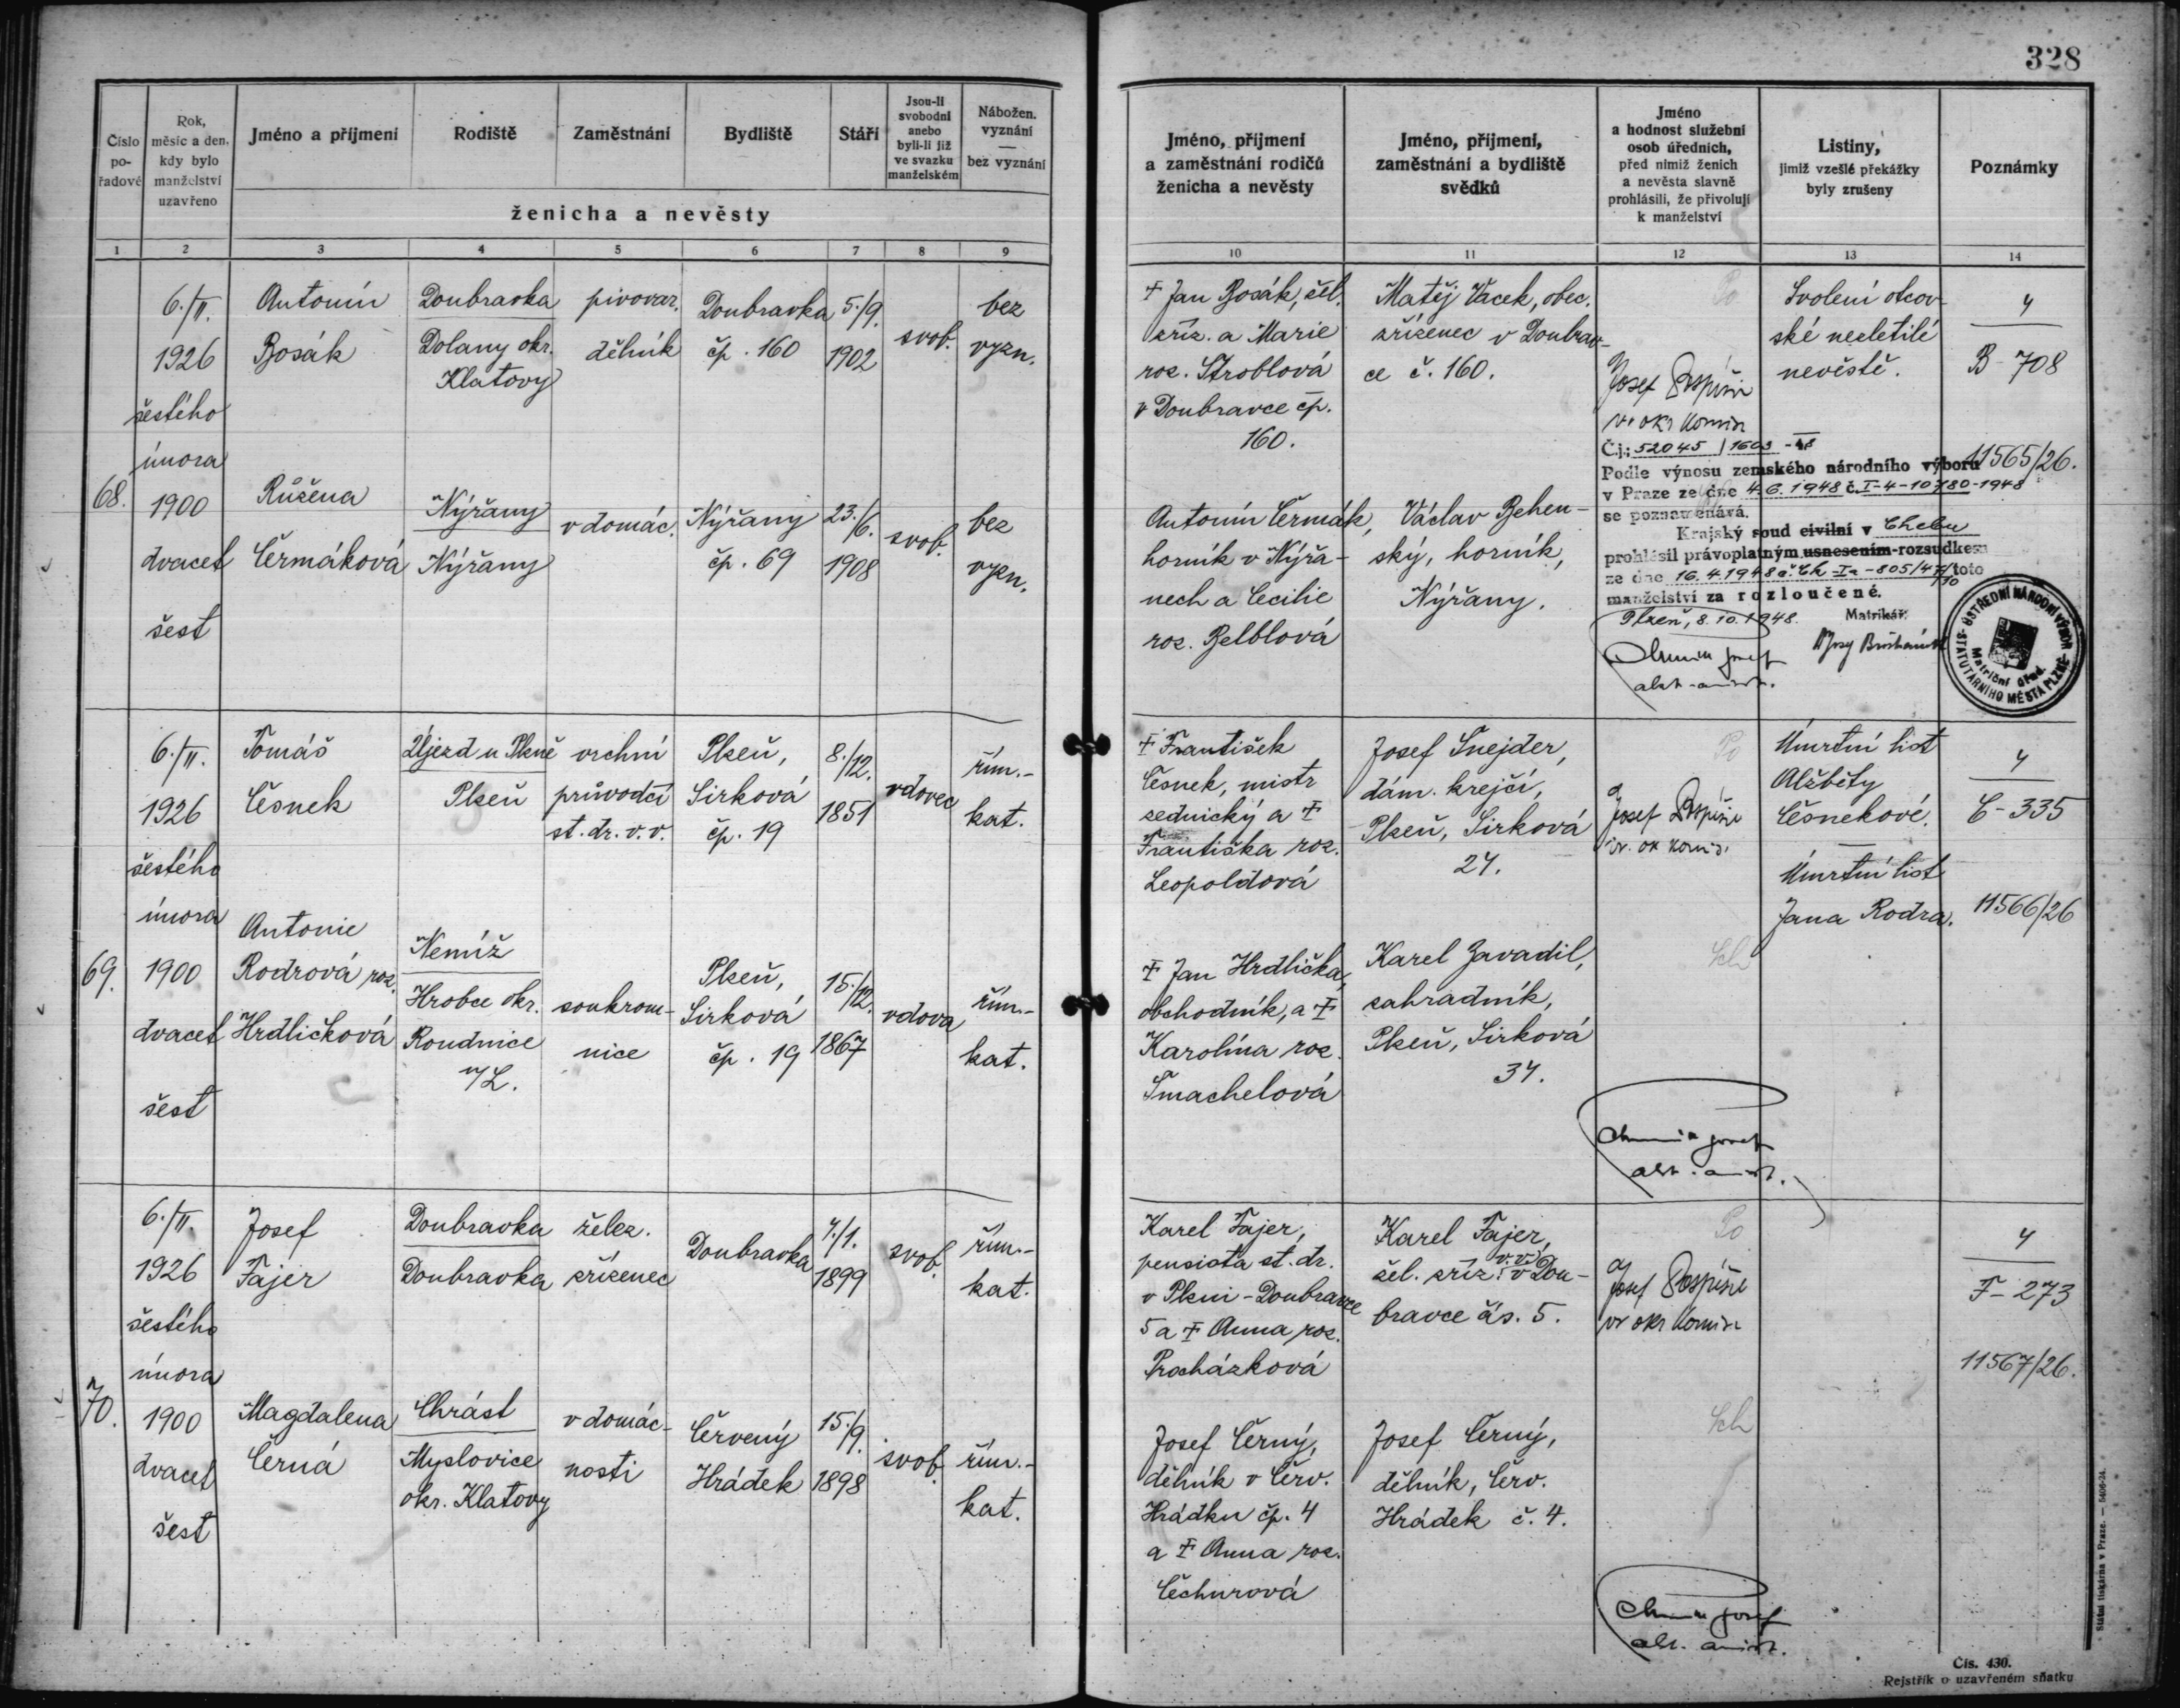 328
Číslo po-řadové
Rok, měsíc a den, kdy bylo manželství uzavřeno
Jméno a příjmení
Rodiště
Zaměstnání
Bydliště
Stáří
Jsou-li svobodni anebo byli-li již ve svazku manželském
Nábožen. vyznání — bez vyznání
ženicha a nevěsty
Jméno, příjmení a zaměstnání rodičů ženicha a nevěsty
Jméno, příjmení, zaměstnání a bydliště svědků
Jméno a hodnost služební osob úředních, před nimiž ženich a nevěsta slavně prohlásili, že přivolují k manželství
Listiny, jimiž vzešlé překážky byly zrušeny
Poznámky
1 2 3 4 5 6 7 8 9 10 11 12 13 14
68.
6./II.
1926
šestého
února
1900
dvacet
šest
Antonín
Bosák
Doubravka
Dolany okr.
Klatovy
pivovar.
dělník
Doubravka
čp. 160
5./9.
1902
svob.
bez
vyzn.
Růžena
Čermáková
Nýřany
Nýřany
v domác.
Nýřany
čp. 69
23./6.
1908
svob.
bez
vyzn.
† Jan Bosák, žel.
zříz. a Marie
roz. Stroblová
v Doubravce čp.
160.
Matěj Vacek, obec.
zřízenec v Doubrav-
ce č. 160.
Josef Pospíšil
Svolení otcov-
ské nezletilé
nevěstě.
4
B-708
11565/26.
Antonín Čermák,
horník v Nýřa-
nech a Cecilie
roz. Belblová
Václav Behen-
ský, horník,
Nýřany.
Č.j.: 52045 / 1603 - 48
Podle výnosu zemského národního výboru
v Praze ze dne 4.6.1948 č. I-4-10780-1948
se poznamenává.
Krajský soud civilní v Chebu
prohlásil právoplatným usnesením-rozsudkem
ze dne 16.4.1948 č. Ck Ia-805/47/10 toto
manželství za rozloučené.
Plzeň, 8.10.1948.
Matrikář:
ÚSTŘEDNÍ NÁRODNÍ VÝBOR STATUTÁRNÍHO MĚSTA PLZNĚ
Matriční úřad
69.
6./II.
1926
šestého
února
1900
dvacet
šest
Tomáš
Česnek
Újezd u Plzně
Plzeň
vrchní
průvodčí
st. dr. v. v.
Plzeň,
Sirková
čp. 19
8./12.
1851
vdovec
řím.-
kat.
Antonie
Rodrová roz.
Hrdličková
Nemíž
Hrobce okr.
Roudnice
n/L.
soukrom-
nice
Plzeň,
Sirková
čp. 19
15./12.
1867
vdova
řím.-
kat.
† František
Česnek, mistr
sednický a †
Františka roz.
Leopoldová
Josef Šnejder,
dám. krejčí,
Plzeň, Sirková
27.
Josef Pospíšil
Úmrtní list
Alžběty
Česnekové.
Úmrtní list
Jana Rodra.
4
Č-335
11566/26
† Jan Hrdlička,
obchodník, a †
Karolína roz.
Šmachelová
Karel Zavadil,
zahradník,
Plzeň, Sirková
37.
70.
6./II.
1926
šestého
února
1900
dvacet
šest
Josef
Fajer
Doubravka
Doubravka
želez.
zřízenec
Doubravka
7./1.
1899
svob.
řím.-
kat.
Magdalena
Černá
Chrást
Myslovice
okr. Klatovy
v domác-
nosti
Červený
Hrádek
15./9.
1898
svob.
řím.-
kat.
Karel Fajer,
pensista st. dr.
v Plzni-Doubravce
5 a † Anna roz.
Procházková
Karel Fajer,
žel. zříz. v.v. v Dou-
bravce čís. 5.
Josef Pospíšil
4
F-273
11567/26.
Josef Černý,
dělník v Červ.
Hrádku čp. 4
a † Anna roz.
Čechurová
Josef Černý,
dělník, Červ.
Hrádek č. 4.
Státní tiskárna v Praze. — 5406-24.
Čís. 430.
Rejstřík o uzavřeném sňatku